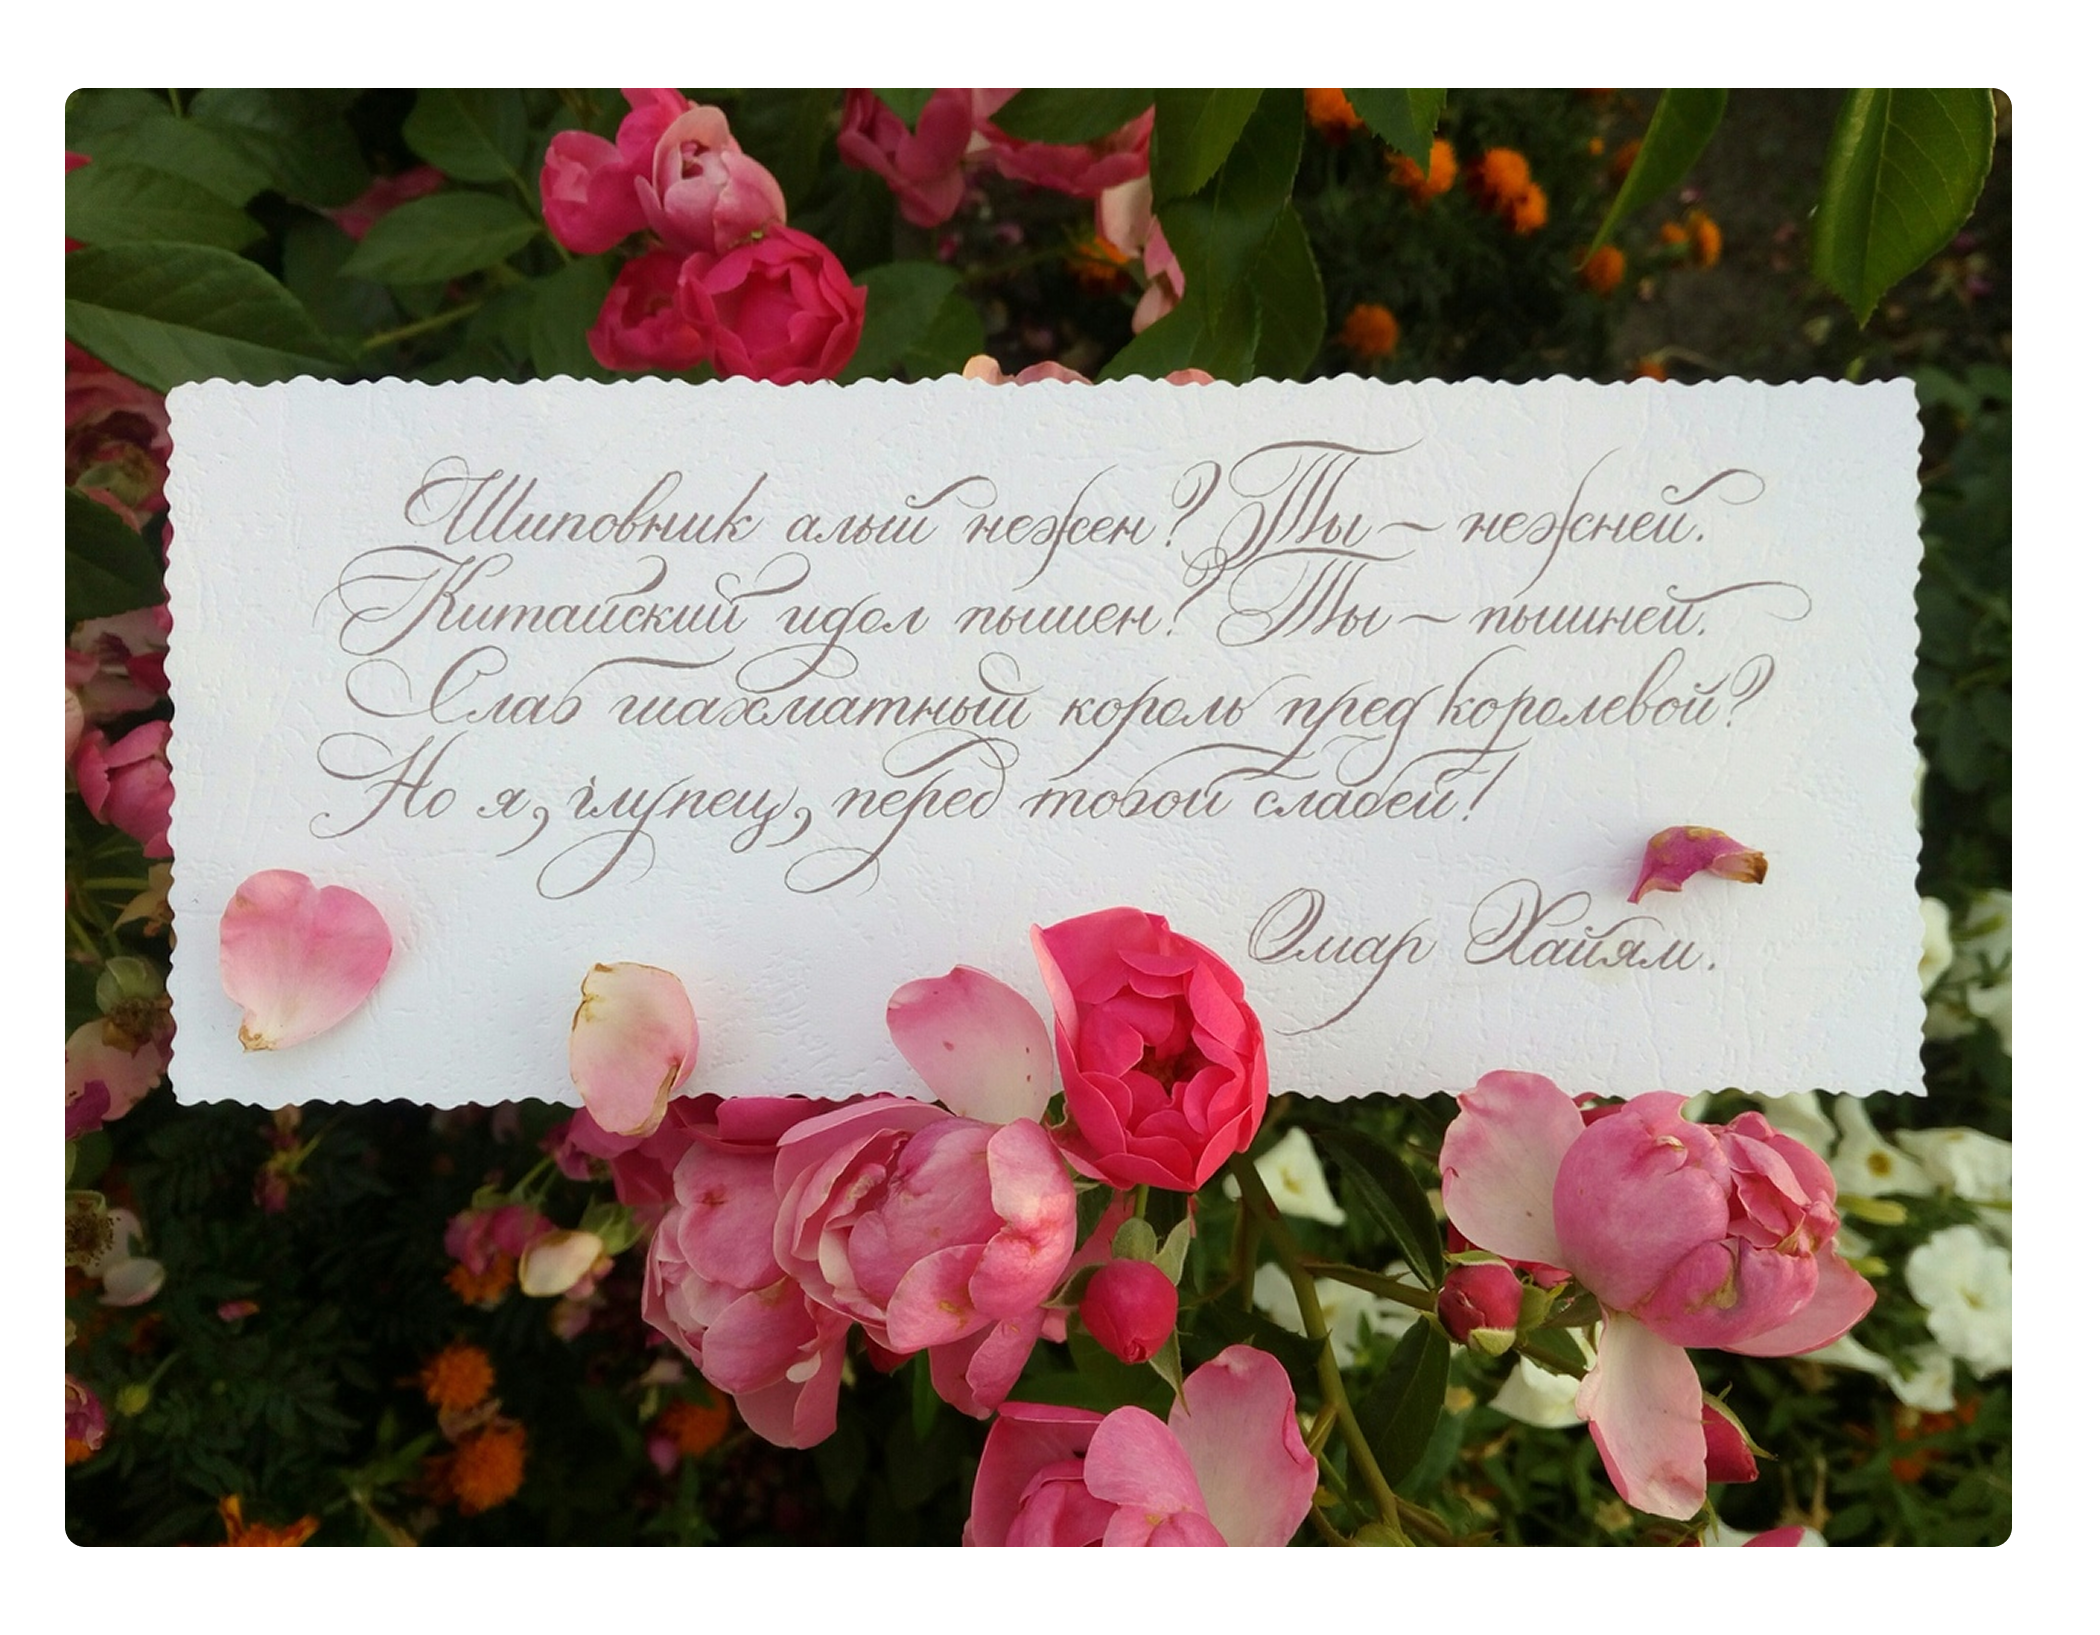 Шиповник алый нежен? Ты – нежней.
Китайский идол пышен? Ты – пышней.
Слаб шахматный король пред королевой?
Но я, глупец, перед тобой слабей!
Омар Хайям.